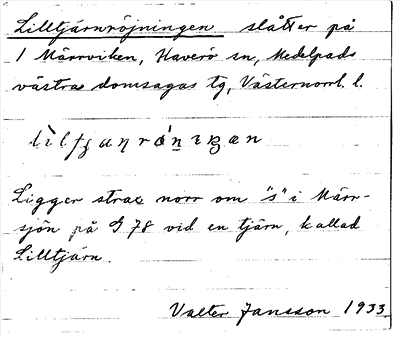 Lilltjärnröjningen slåtter på
1 Märrviken, Haverö sn, Medelpads
västra domsagas tg, Västernorrl. l.
Ligger strax norr om "s" i Märr-
sjön på G 78 vid en tjärn, kallad
Lilltjärn.
Valter Jansson 1933